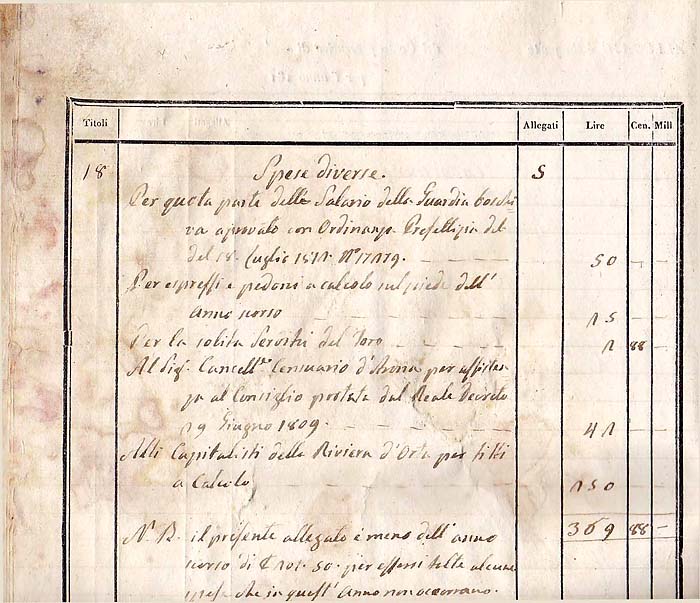 Titoli Allegati Lire Cen. Mill
18 Spese diverse. S
Per quota parte delle Salario della Guardia boschi
va aprovato con Ordinanza Prefettizia del
del 18. Luglio 1811. N° 17179. 50
Per espressi e pedoni a calcolo sul piede dell'
anno scorso 15
Per la solita Servitù del Toro 1 88
Al Sig.r Cancell.re Censuario d'Arona per assisten
za al Consiglio portata dal Reale Decreto
19 Giugno 1809. 41
Alli Capitalisti della Riviera d'Orta per fitti
a Calcolo 150
369 88
N. B. il presente allegato è meno dell'anno
scorso di £ 101. 50. per essersi fatte alcune
spese che in quest'anno non occorrano.